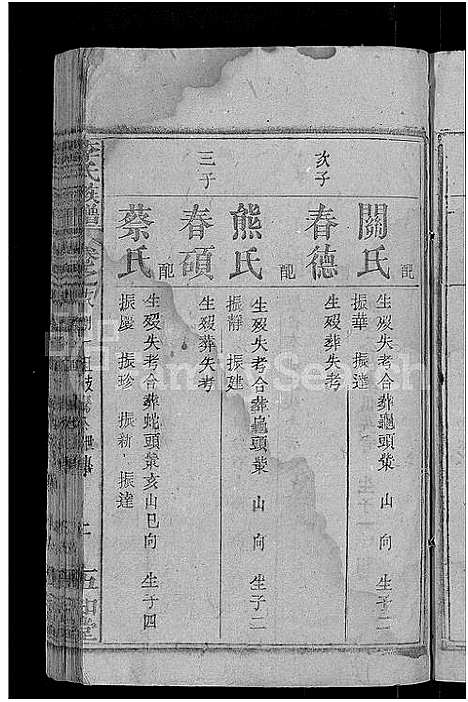 配
關氏
生歿失考合葬龜頭䕃 山 向 生子二
振華 振達
次子
春德
生歿葬失考
配
熊氏
生歿失考合葬龜頭䕃 山 向 生子二
振靜 振建
三子
春碩
生歿葬失考
配
蔡氏
生歿失考合葬蛇頭䕃亥山巳向 生子四
振慶 振珍 振新 振達
李氏族譜
五和堂